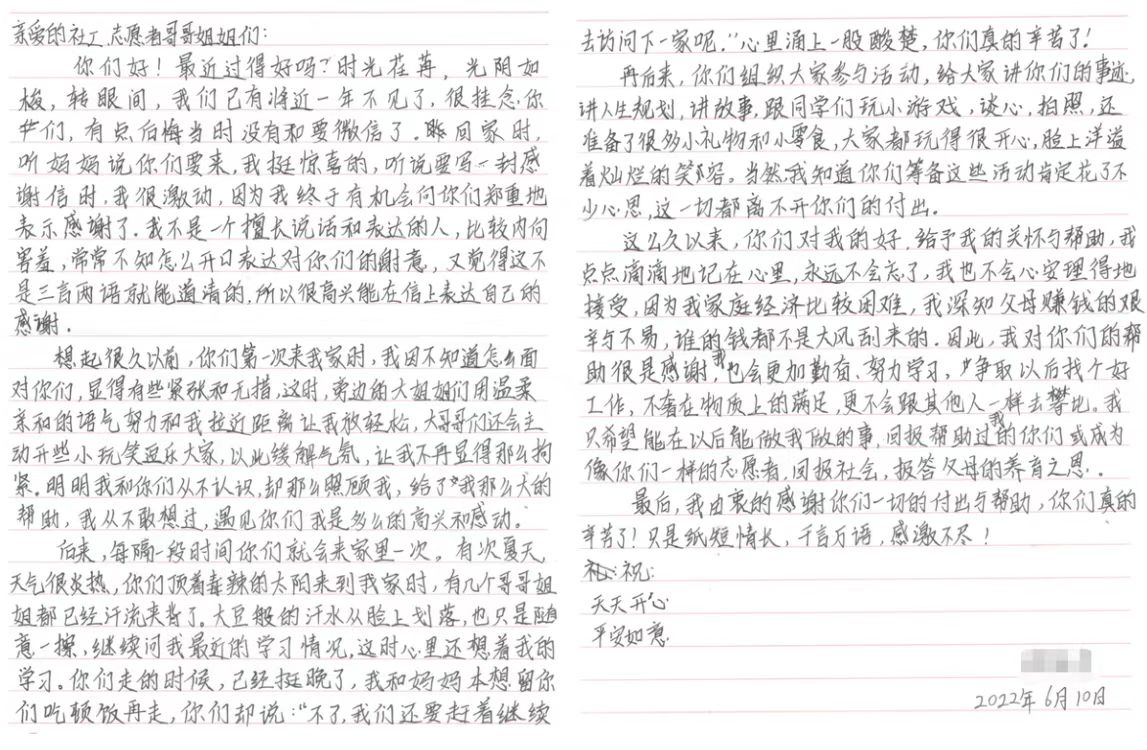 亲爱的社工、志愿者哥哥姐姐们：
你们好！最近过得好吗？时光荏苒，光阴如
梭，转眼间，我们已有将近一年不见了，很挂念你
们，有点后悔当时没有和要微信了。昨回家时，
听妈妈说你们要来，我挺惊喜的，听说要写一封感
谢信时，我很激动，因为我终于有机会向你们郑重地
表示感谢了。我不是一个擅长说话和表达的人，比较内向
害羞，常常不知怎么开口表达对你们的谢意，又觉得这不
是三言两语就能道清的，所以很高兴能在信上表达自己的
感谢。
想起很久以前，你们第一次来我家时，我因不知道怎么面
对你们，显得有些紧张和无措，这时，旁边的大姐姐们用温柔
亲和的语气努力和我拉近距离让我放轻松，大哥哥们还会主
动开些小玩笑逗乐大家，以此缓解气氛，让我不再显得那么拘
紧。明明我和你们从不认识，却那么照顾我，给了我那么大的
帮助，我从不敢想过，遇见你们我是多么的高兴和感动。
后来，每隔一段时间你们就会来家里一次。有次夏天，
天气很炎热，你们顶着毒辣的太阳来到我家时，有几个哥哥姐
姐都已经汗流夹背了。大豆般的汗水从脸上划落，也只是随
意一擦，继续问我最近的学习情况，这时心里还想着我的
学习。你们走的时候，已经挺晚了，我和妈妈本想留你
们吃顿饭再走，你们却说：“不了，我们还要赶着继续
去访问下一家呢。”心里涌上一股酸楚，你们真的辛苦了！
再后来，你们组织大家参与活动，给大家讲你们的事迹，
讲人生规划，讲故事，跟同学们玩小游戏，谈心，拍照，还
准备了很多小礼物和小零食，大家都玩得很开心，脸上洋溢
着灿烂的笑容。当然，我知道你们筹备这些活动肯定花了不
少心思，这一切都离不开你们的付出。
这么久以来，你们对我的好，给予我的关怀与帮助，我
点点滴滴地记在心里，永远不会忘了，我也不会心安理得地
接受，因为我家庭经济比较困难，我深知父母赚钱的艰
辛与不易，谁的钱都不是大风刮来的。因此，我对你们的帮
助很是感谢，我也会更加勤奋、努力学习，争取以后找个好
工作，不奢在物质上的满足，更不会跟其他人一样去攀比。我
只希望能在以后能做我可做的事，回报帮助过我的你们或成为
像你们一样的志愿者，回报社会，报答父母的养育之恩。
最后，我由衷的感谢你们一切的付出与帮助，你们真的
辛苦了！只是纸短情长，千言万语，感激不尽！
祝：
天天开心
平安如意
2022年6月10日